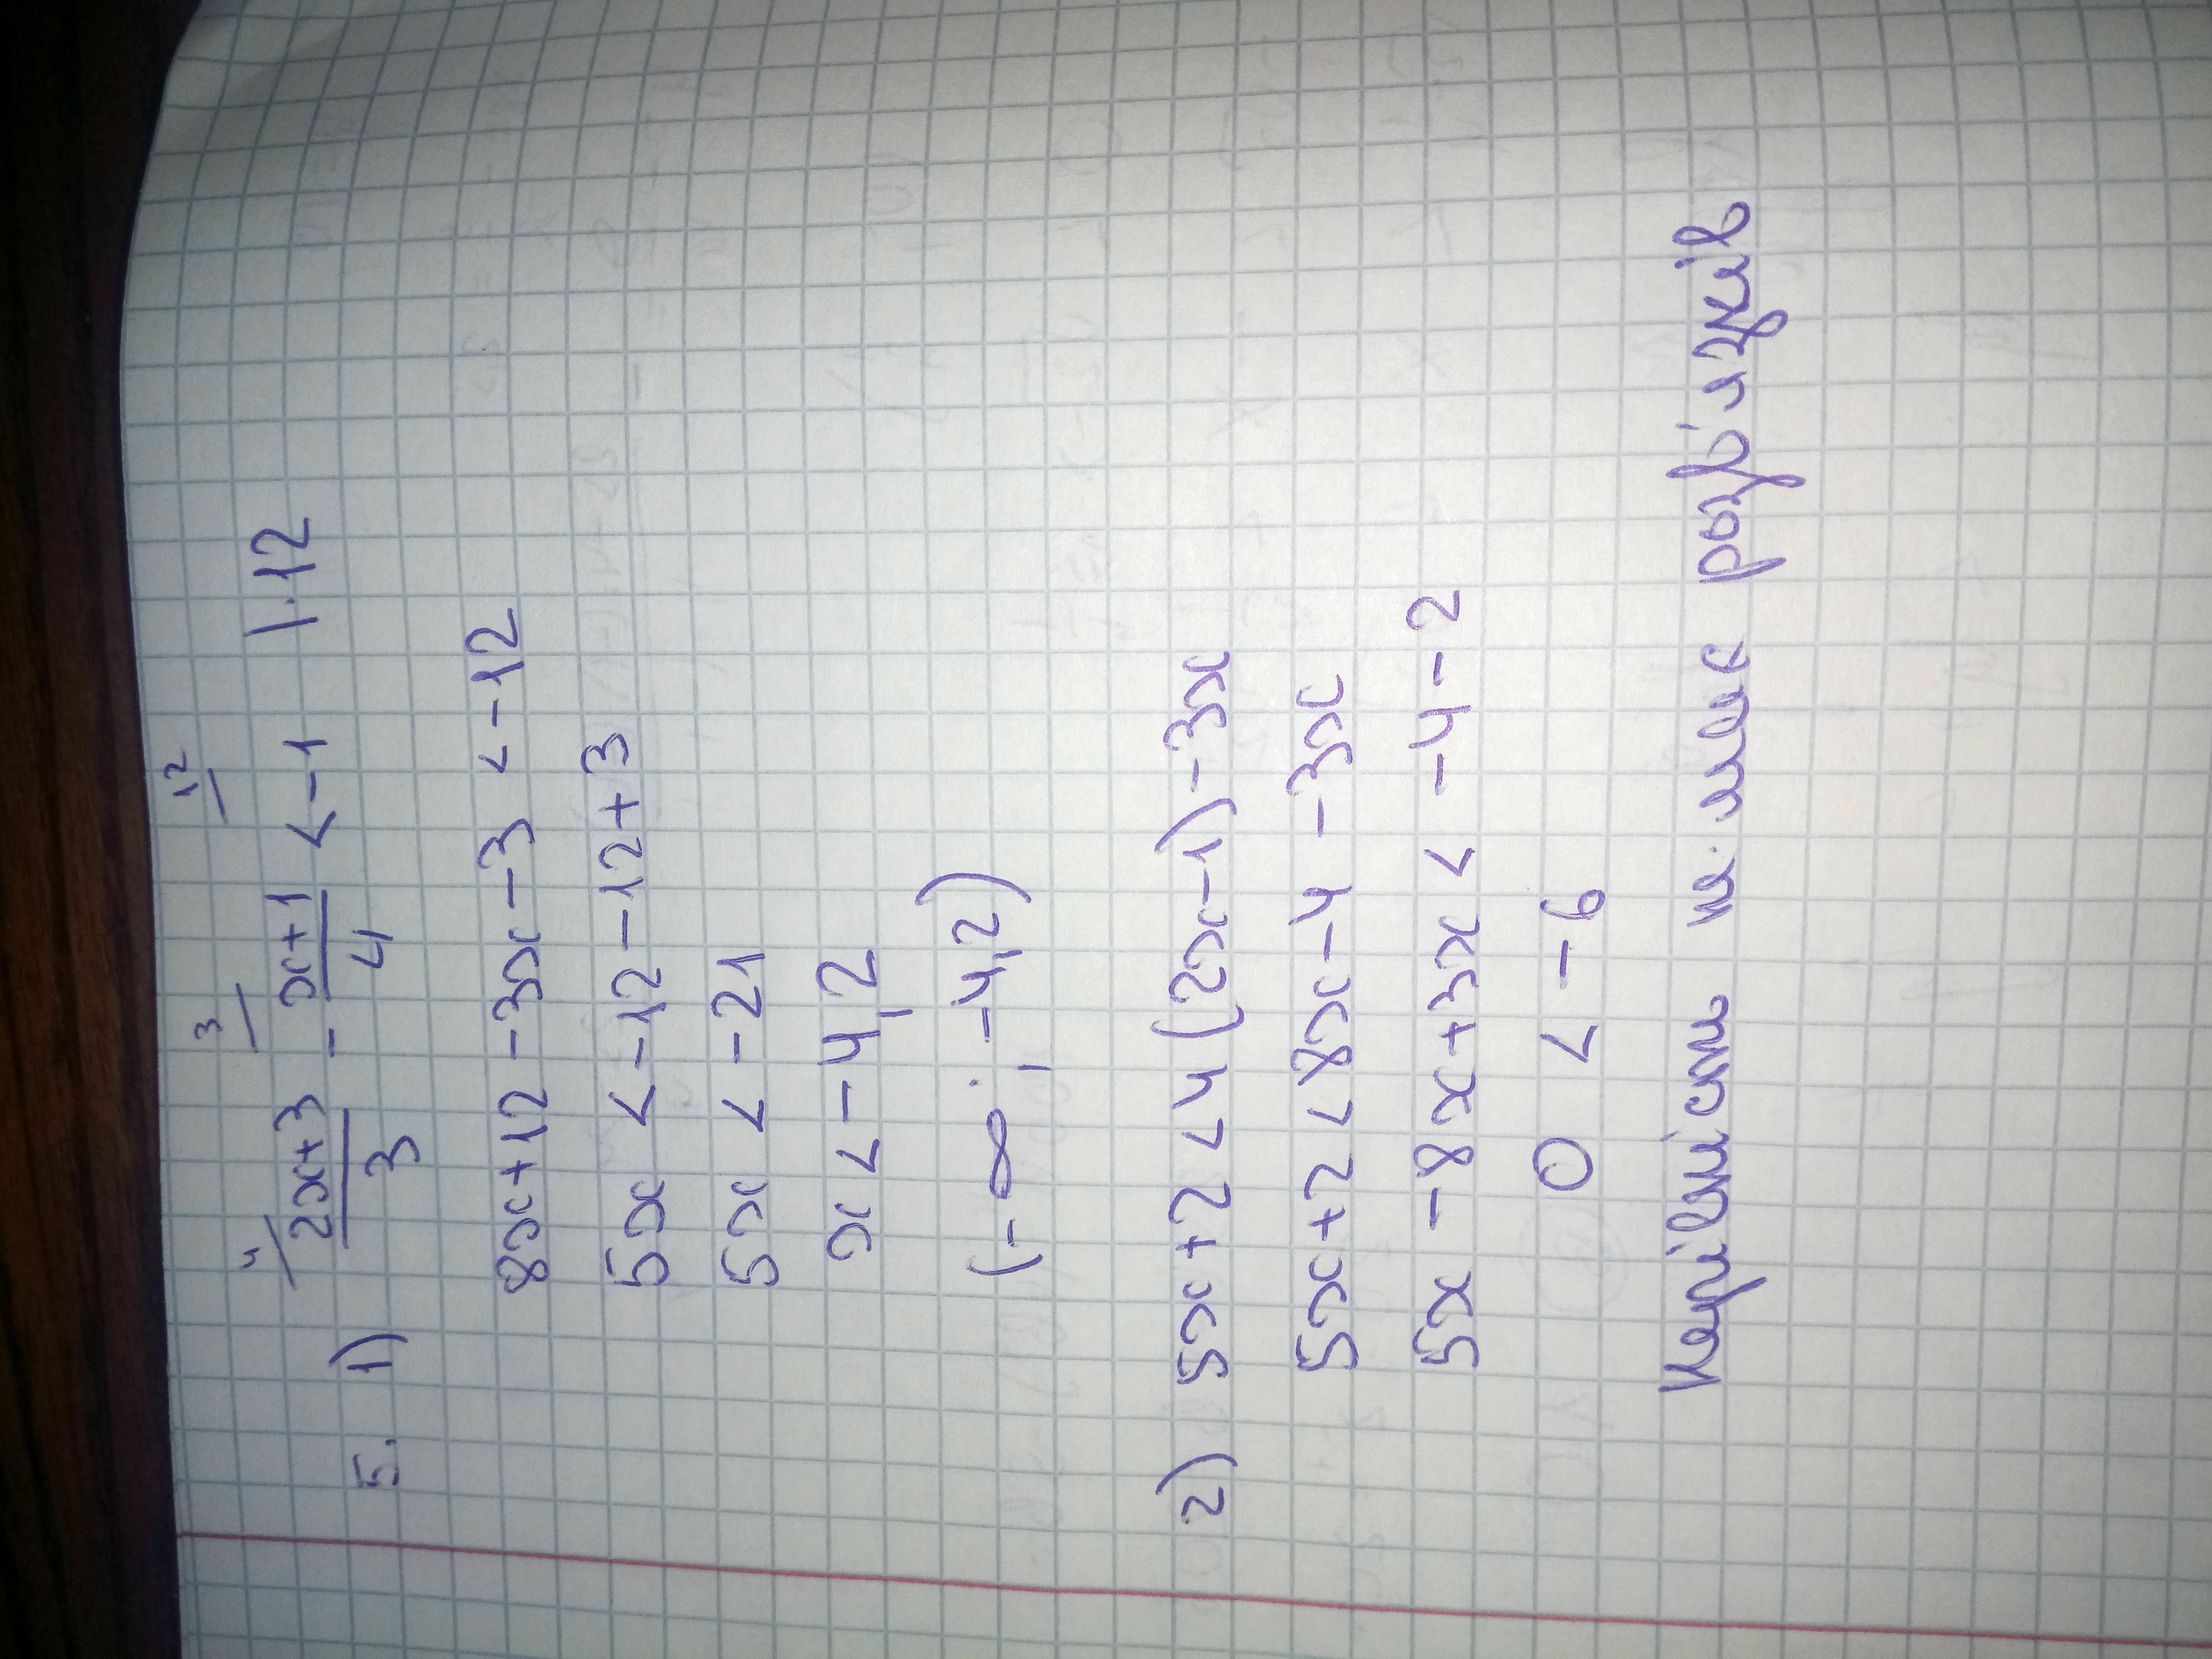 5. 1) ⁴/ (2x+3)/3 - ³/ (x+1)/4 < ¹²/ -1 |·12
8x+12-3x-3 < -12
5x < -12-12+3
5x < -21
x < -4,2
(-∞; -4,2)
2) 5x+2 < 4(2x-1)-3x
5x+2 < 8x-4-3x
5x-8x+3x < -4-2
0 < -6
Нерівність не має розв'язків